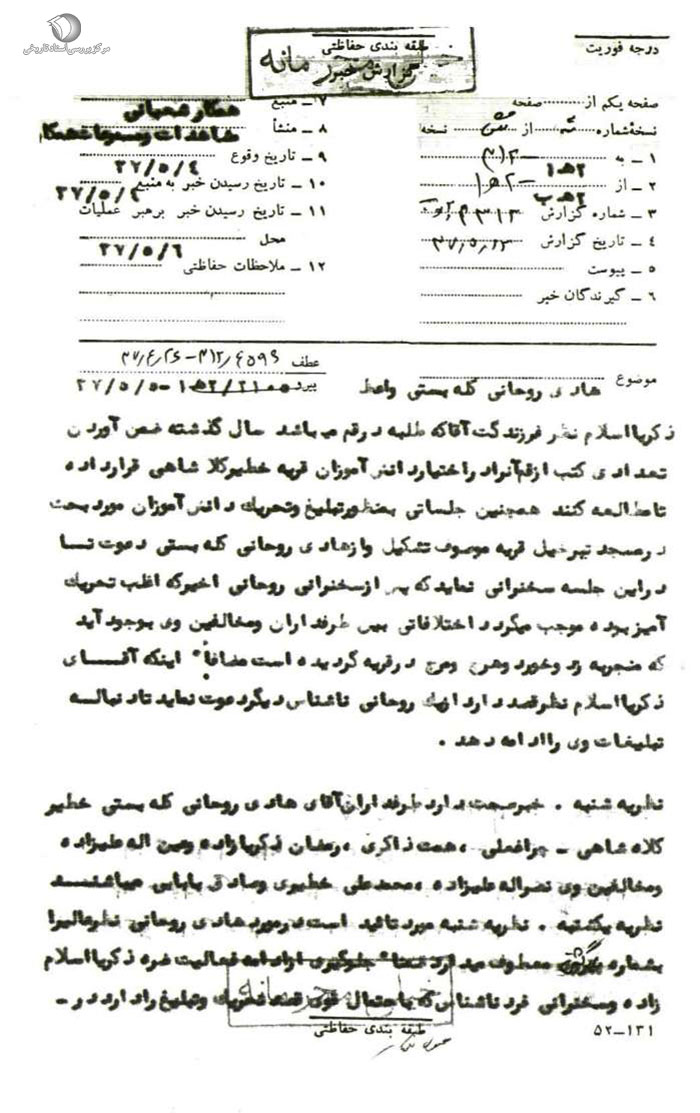 مرکز بررسی اسناد تاریخی
درجه فوریت
طبقه بندی حفاظتی
گزارش خبر
صفحه یکم از صفحه
نسخهٔ شماره از نسخه
۱ ـ به ۳۱۲
۲ ـ از ۲ه۱
۳ ـ شماره گزارش
۴ ـ تاریخ گزارش
۵ ـ پیوست
۶ ـ گیرندگان خبر
۷ ـ منبع همکار شعبانی
۸ ـ منشأ مشاهدات ومسموعات همکار
۹ ـ تاریخ وقوع ۳۷/۵/۴
۱۰ ـ تاریخ رسیدن خبر به منبع
۱۱ ـ تاریخ رسیدن خبر برهبر عملیات
محل ۳۷/۵/۶
۱۲ ـ ملاحظات حفاظتی
موضوع هادی روحانی گله بستی واعظ
عطف
پیرو
ذکریا اسلام نظر فرزند گت آقاکه طلبه درقم می باشد سال گذشته ضمن آوردن
تعدادی کتب ازقم آنراد راختیارد انش آموزان قریه خطیرکلا شاهی قرارداده
تامطالعه کنند همچنین جلساتی بمنظورتبلیغ وتحریک دانش آموزان مورد بحث
درمسجد تیرخیل قریه موصوف تشکیل وازهادی روحانی گله بستی دعوت تسا
دراین جلسه سخنرانی نماید که پس ازسخنرانی روحانی اخیرکه اغلب تحریک
آمیزبوده موجب میگردد اختلافاتی بین طرفداران ومخالفین وی بوجود آید
که منجربه زد وخورد وهرج ومرج درقریه گردیده است مضافاً اینکه آقای
ذکریا اسلام نظرقصد دارد ازیک روحانی ناشناس دیگردعوت نماید تادنباله
تبلیغات وی راادامه دهد .
نظریه شنبه . خبرصحت دارد طرفداران آقای هادی روحانی گله بستی خطیر
کلاه شاهی ـ چراغعلی ، همت ذاکری ، رمضان ذکریازاده وعین اله علیزاده
ومخالفین وی نصراله علیزاده ، محمدعلی خطیری وصادق بابایی میباشند
نظریه یکشنبه . نظریه شنبه مورد تائید است درمورد هادی روحانی نظرعالیرا
بشماره معطوف میدارد ضمنا" جلوگیری ازادامه فعالیت ذکریا اسلام
زاده وسخنرانی فرد ناشناس که باحتمال قوی قصد تحریک وتبلیغ رادارد در ـ
طبقه بندی حفاظتی
۵۲ـ۱۳۱